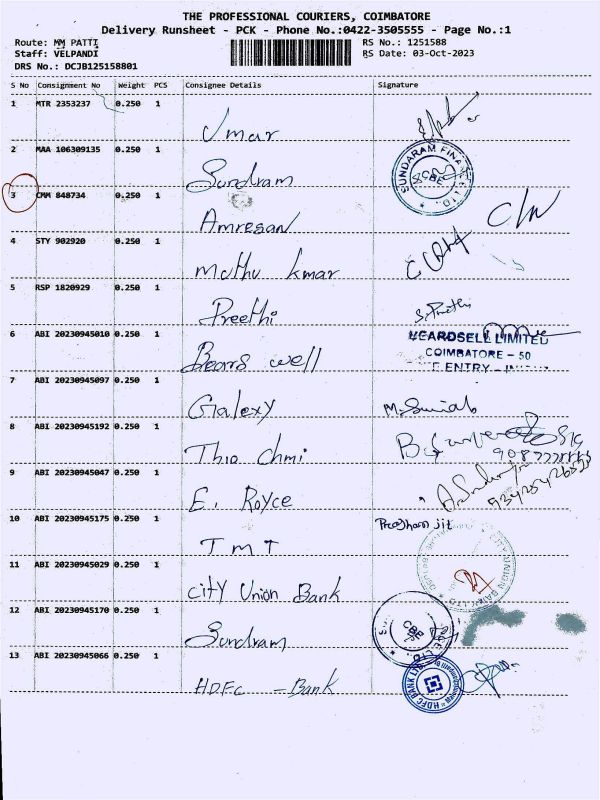 THE PROFESSIONAL COURIERS, COIMBATORE
Delivery Runsheet - PCK - Phone No.:0422-3505555 - Page No.:1
Route: MM PATTI RS No.: 1251588
Staff: VELPANDI RS Date: 03-Oct-2023
DRS No.: DCJB125158801
S No Consignment No Weight PCS Consignee Details Signature
1 MTR 2353237 0.250 1 Umar
2 MAA 106309135 0.250 1 Sundram
SUNDARAM FINANCE LTD.
3 CMM 848734 0.250 1 Amresan
4 STY 902920 0.250 1 Muthu kmar
5 RSP 1820929 0.250 1 Preethi
6 ABI 20230945010 0.250 1 Bears well
BEARDSELL LIMITED
COIMBATORE - 50
ENTRY
7 ABI 20230945097 0.250 1 Galexy
8 ABI 20230945192 0.250 1 Thio Chmi
9 ABI 20230945047 0.250 1 E. Royce
10 ABI 20230945175 0.250 1 TMT
11 ABI 20230945029 0.250 1 City Union Bank
CITY UNION BANK LTD
12 ABI 20230945170 0.250 1 Sundram
13 ABI 20230945066 0.250 1 HDFC - Bank
HDFC BANK LTD